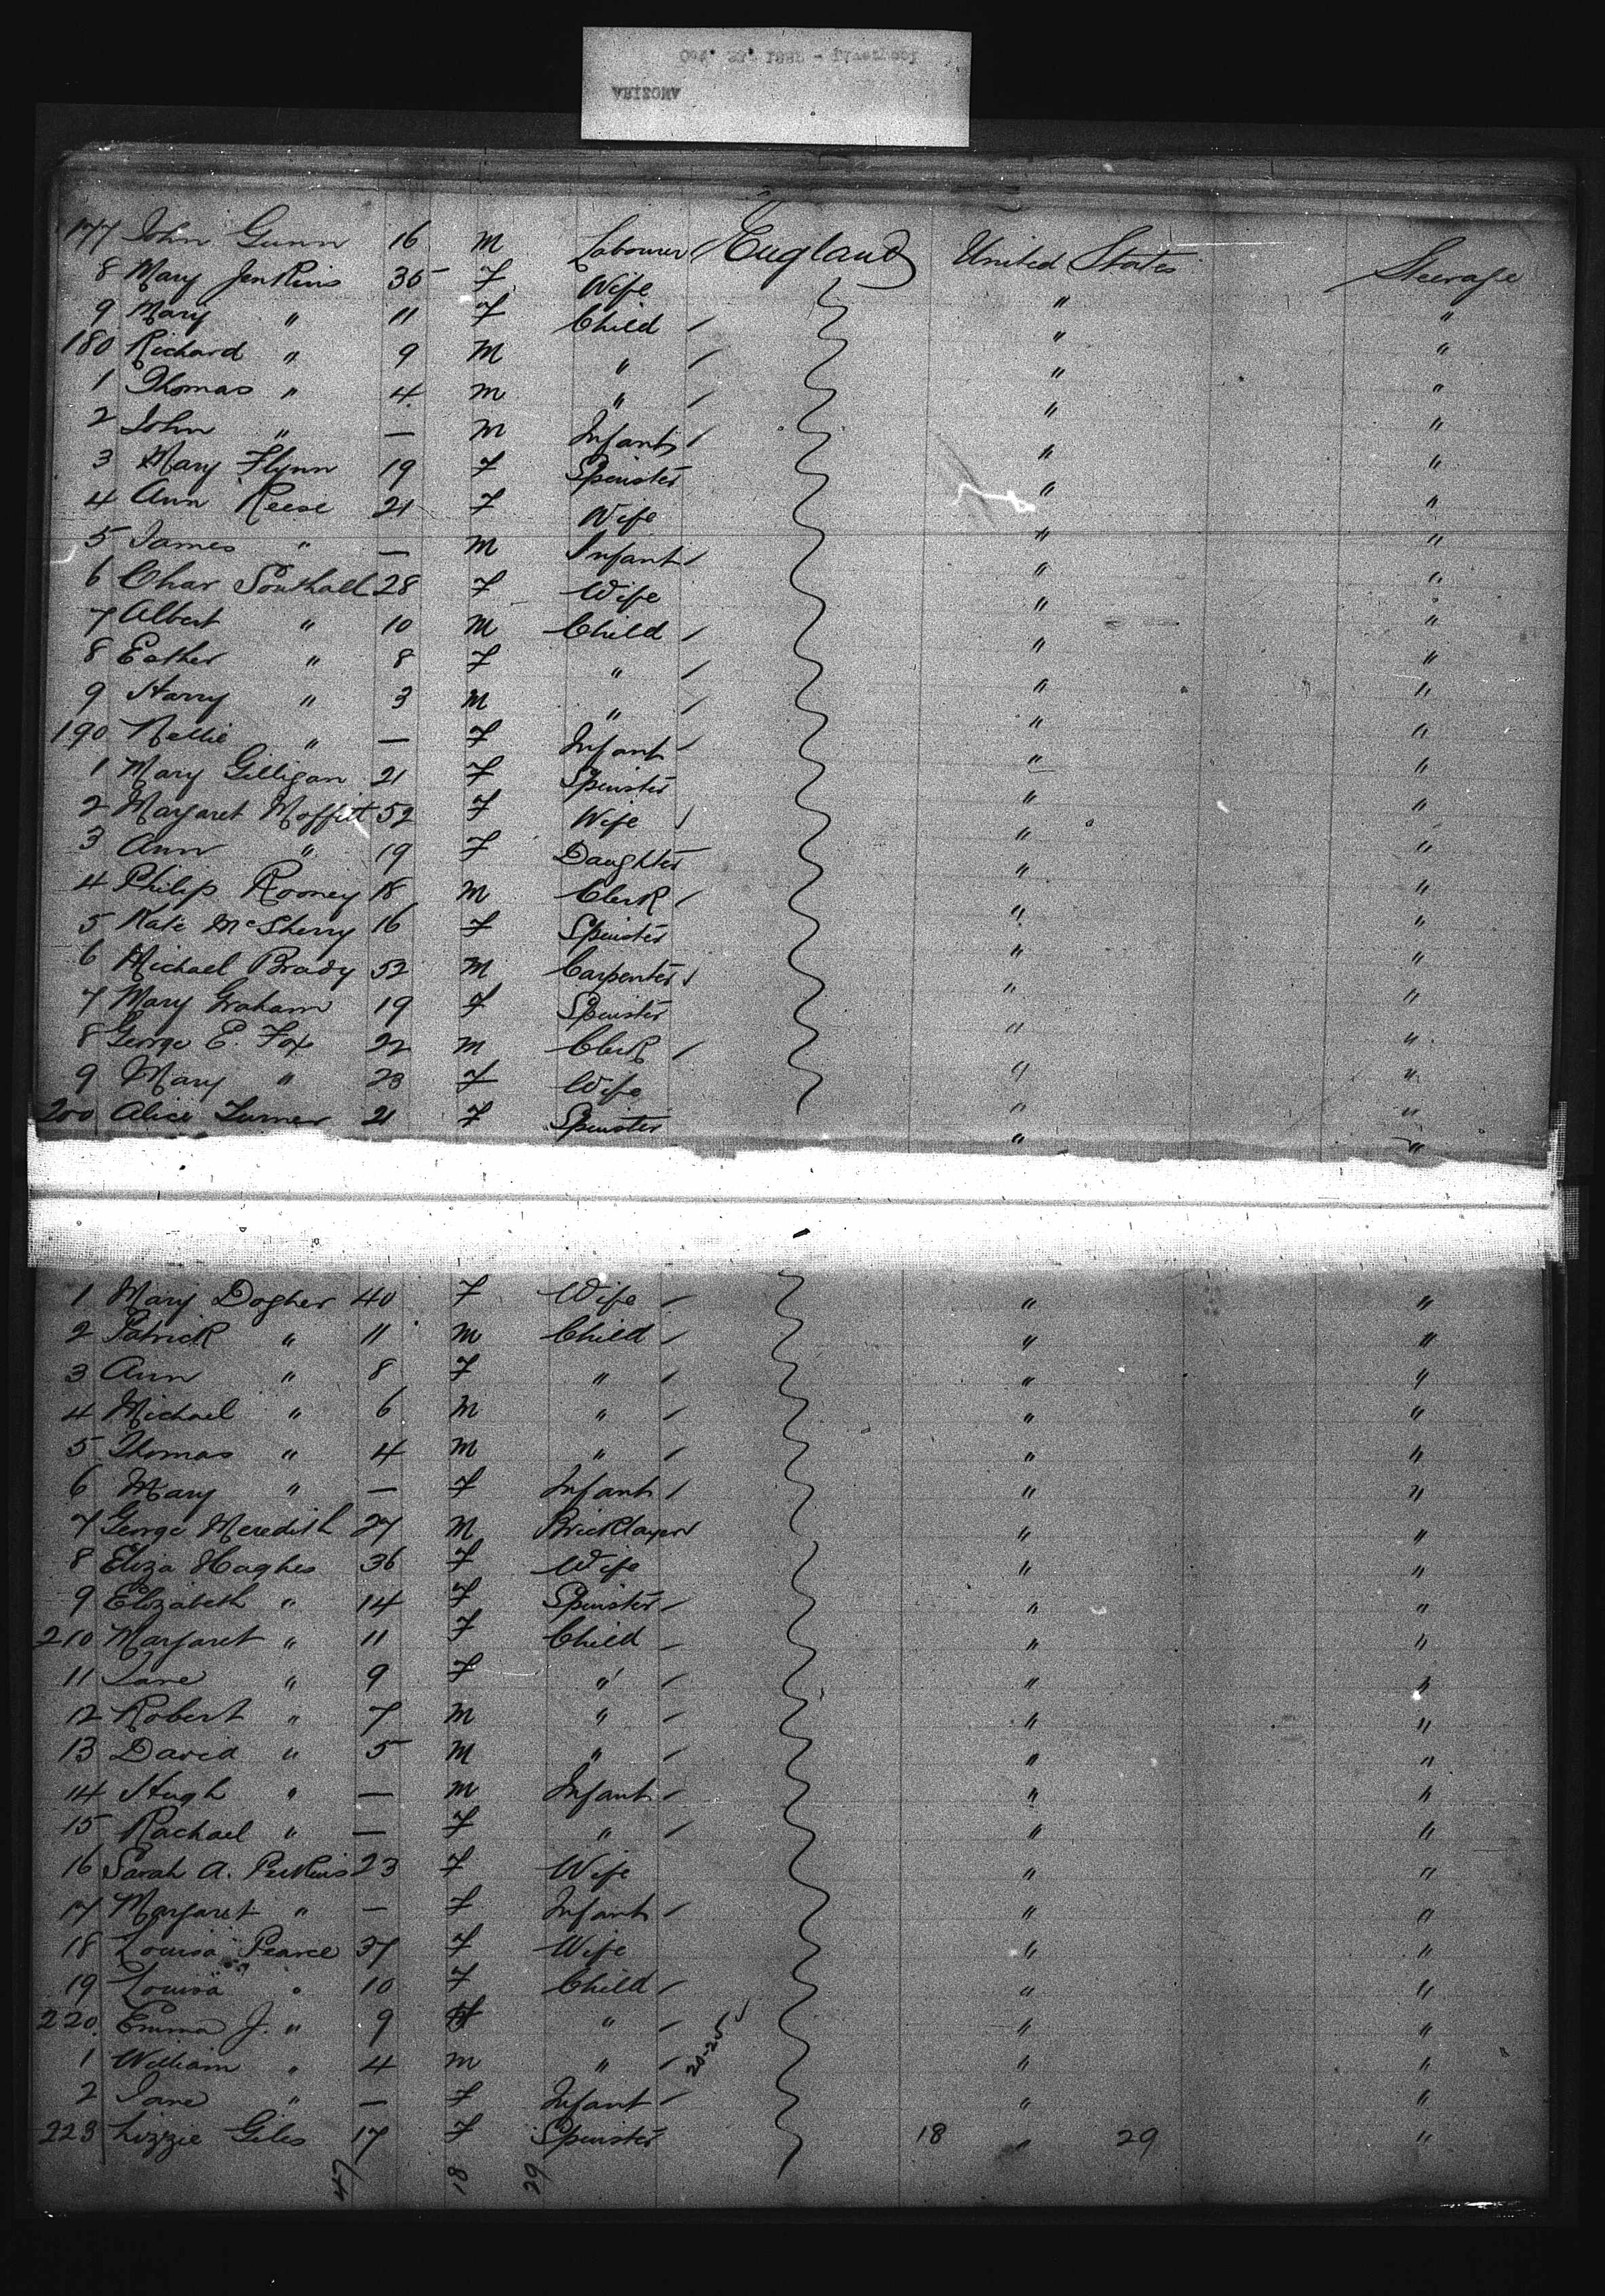 ARIZONA
177 John Gunn 16 M Labourer England United States Steerage
8 Mary Jenkins 35 F Wife " "
9 Mary " 11 F Child / " "
180 Richard " 9 M " / " "
1 Thomas " 4 M " / " "
2 John " — M Infant / " "
3 Mary Flynn 19 F Spinster " "
4 Ann Reese 21 F Wife " "
5 James " — M Infant / " "
6 Char Southall 28 F Wife " "
7 Albert " 10 M Child / " "
8 Esther " 8 F " / " "
9 Harry " 3 M " / " "
190 Nellie " — F Infant / " "
1 Mary Gilligan 21 F Spinster " "
2 Margaret Moffitt 52 F Wife / " "
3 Ann " 19 F Daughter " "
4 Philip Rooney 18 M Clerk / " "
5 Kate McSherry 16 F Spinster " "
6 Michael Brady 52 M Carpenter / " "
7 Mary Graham 19 F Spinster " "
8 George E. Fox 22 M Clerk / " "
9 Mary " 23 F Wife " "
200 Alice Turner 21 F Spinster " "
1 Mary Dogher 40 F Wife / " "
2 Patrick " 11 M Child / " "
3 Ann " 8 F " / " "
4 Michael " 6 M " / " "
5 Thomas " 4 M " / " "
6 Mary " — F Infant / " "
7 George Meredith 27 M Bricklayer " "
8 Eliza Hughes 36 F Wife " "
9 Elizabeth " 14 F Spinster / " "
210 Margaret " 11 F Child / " "
11 Jane " 9 F " / " "
12 Robert " 7 M " / " "
13 David " 5 M " / " "
14 Hugh " — M Infant / " "
15 Rachael " — F " / " "
16 Sarah A. Perkins 23 F Wife " "
17 Margaret " — F Infant / " "
18 Louisa Pearce 37 F Wife " "
19 Louisa " 10 F Child / " "
220 Emma J. " 9 F " / " "
1 William " 4 M " / " "
2 Jane " — F Infant / " "
223 Lizzie Giles 17 F Spinster 18 " 29 "
47 18 29